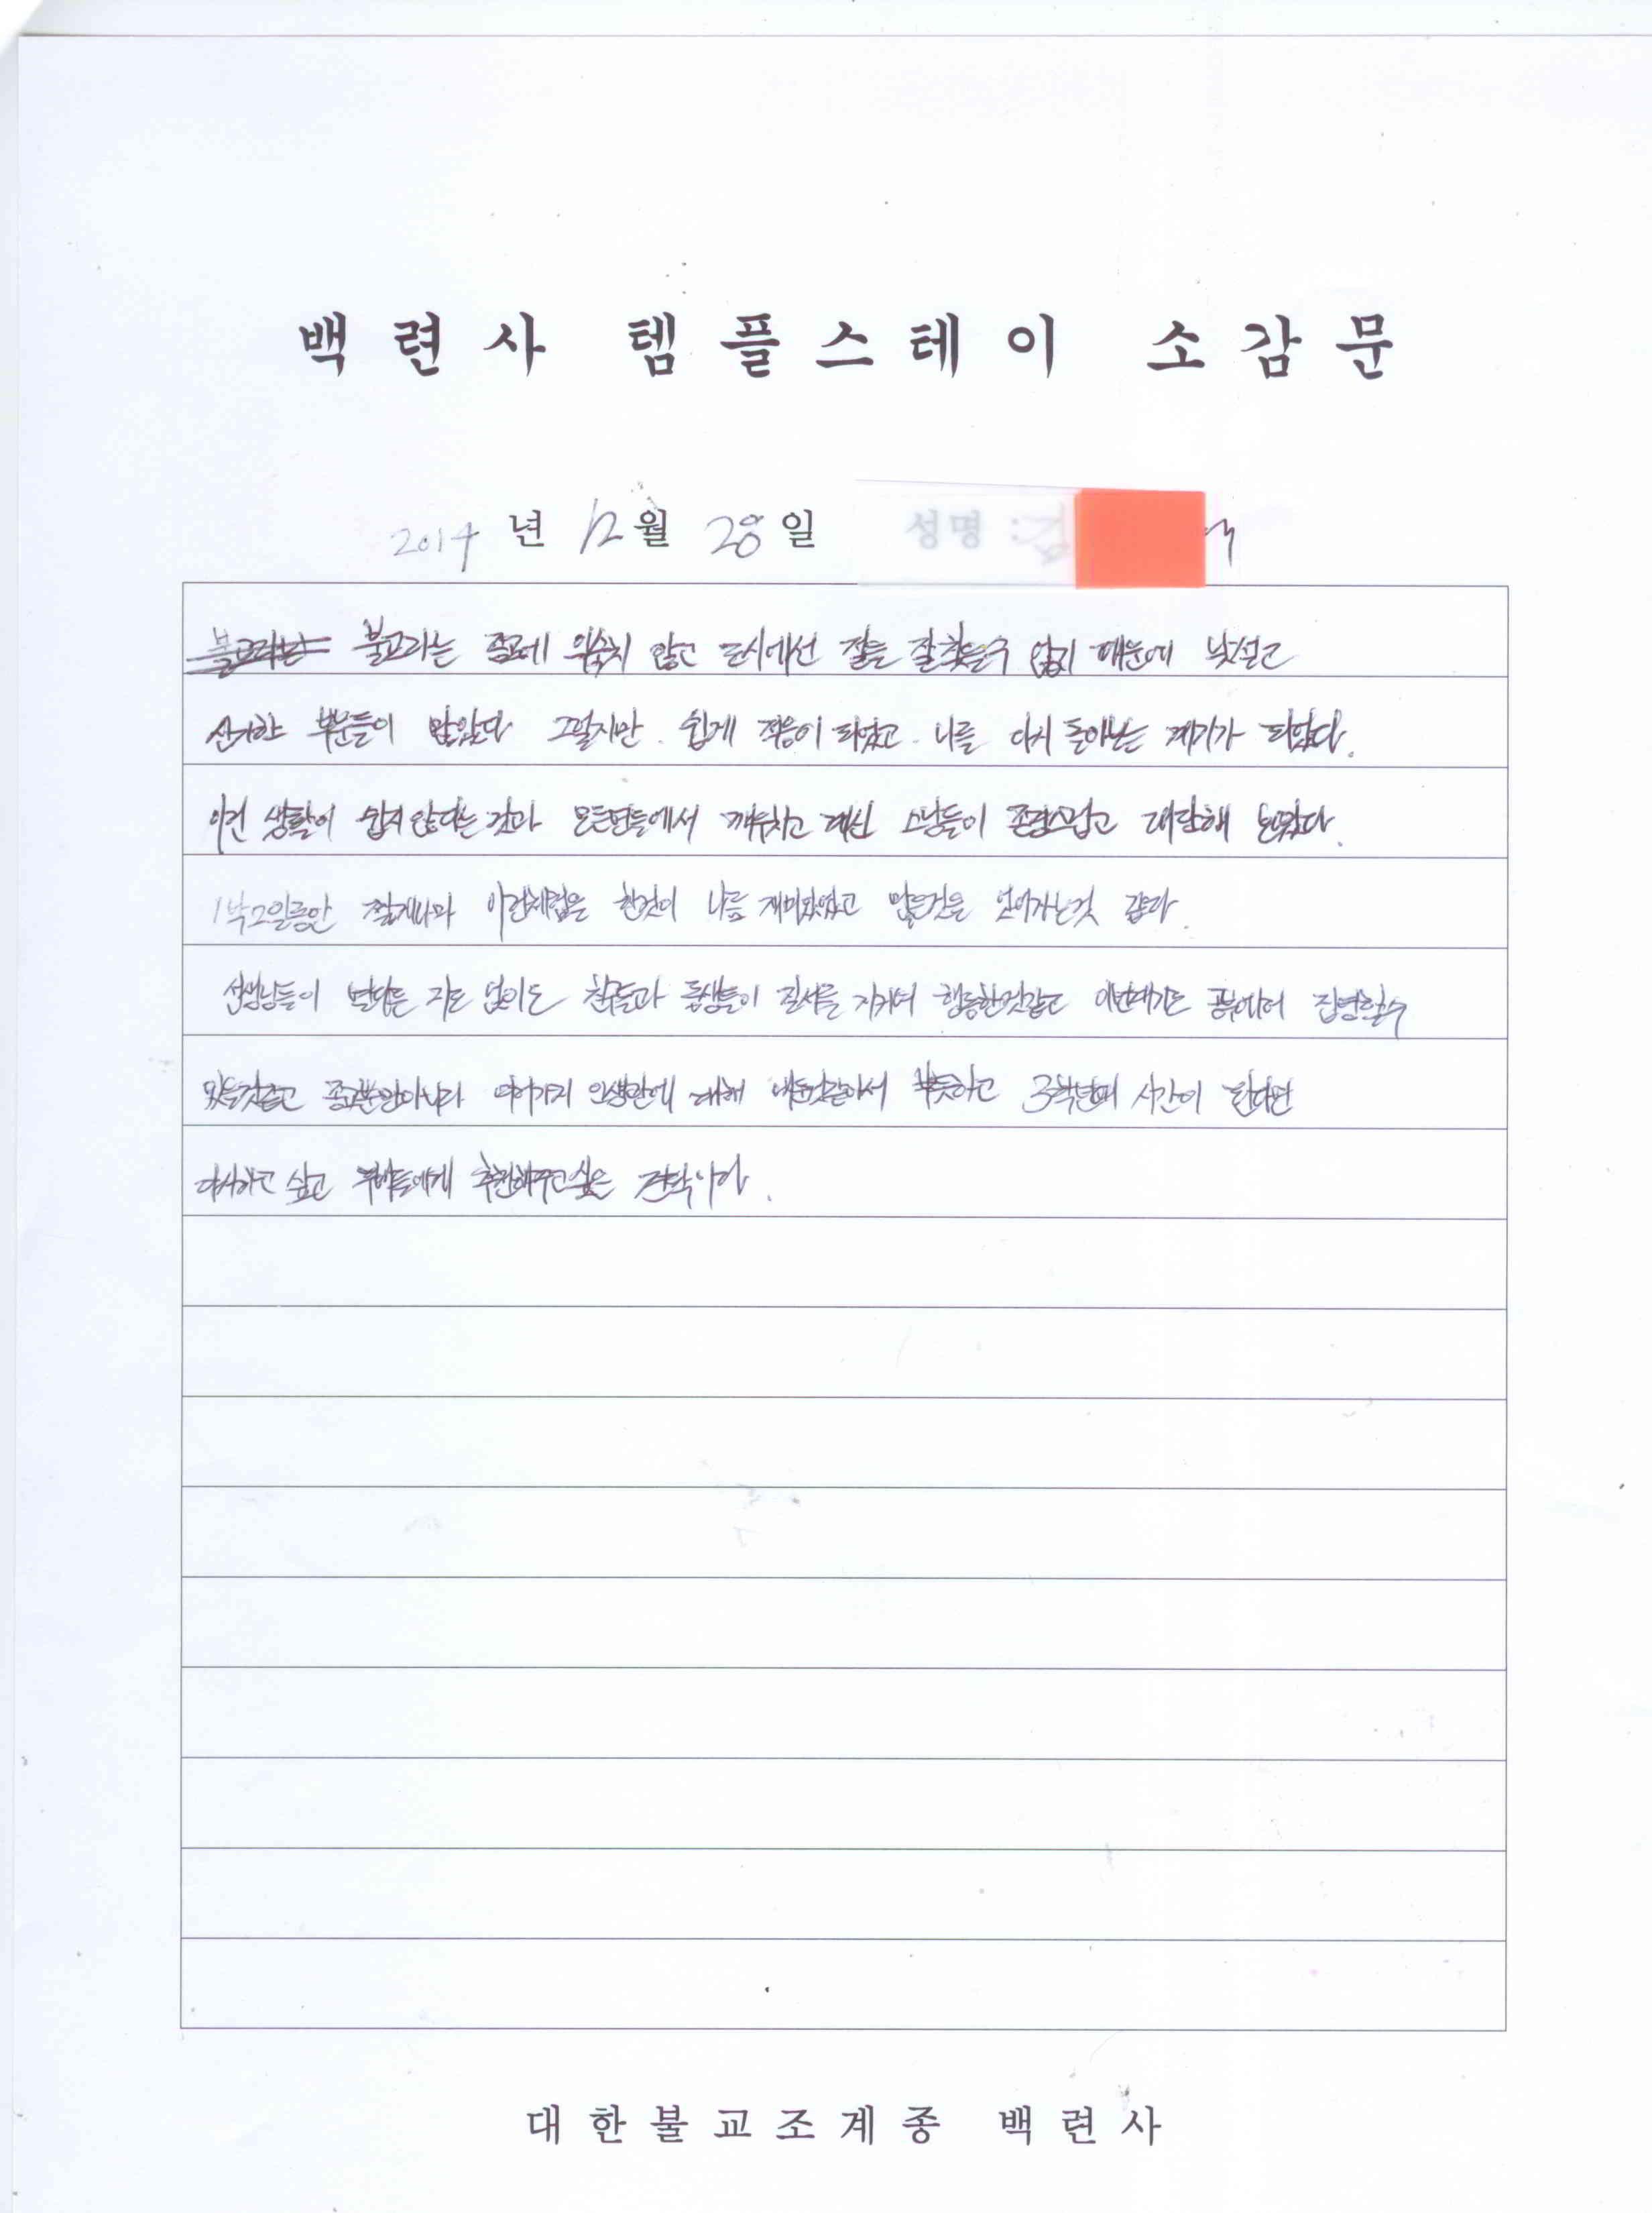 백련사 템플스테이 소감문
2014 년 12 월 28 일 성명 : 김
불교라는 불교라는 종교에 익숙치 않고 도시에선 절을 잘 찾을수 없기 때문에 낯설고
신기한 부분들이 많았다 그렇지만 쉽게 적응이 되었고 나를 다시 돌아보는 계기가 되었다.
이런 생활이 쉽지 않다는 것과 모든면들에서 깨우치고 계신 스님들이 존경스럽고 대단해 보였다.
1박2일동안 짧게나마 이런체험을 한것이 나름 재미있었고 많은것을 얻어가는것 같다.
선생님들이 별다른 지도 없이도 친구들과 동생들이 질서를 지키며 행동한것같고 이번계기로 공부에더 집중할수
있을것같고 종교뿐만아니라 여러가지 인생관에 대해 배운것같아서 뿌듯하고 3학년때 시간이 된다면
다시하고 싶고 후배들에게 추천해주고싶은
대한불교조계종 백련사